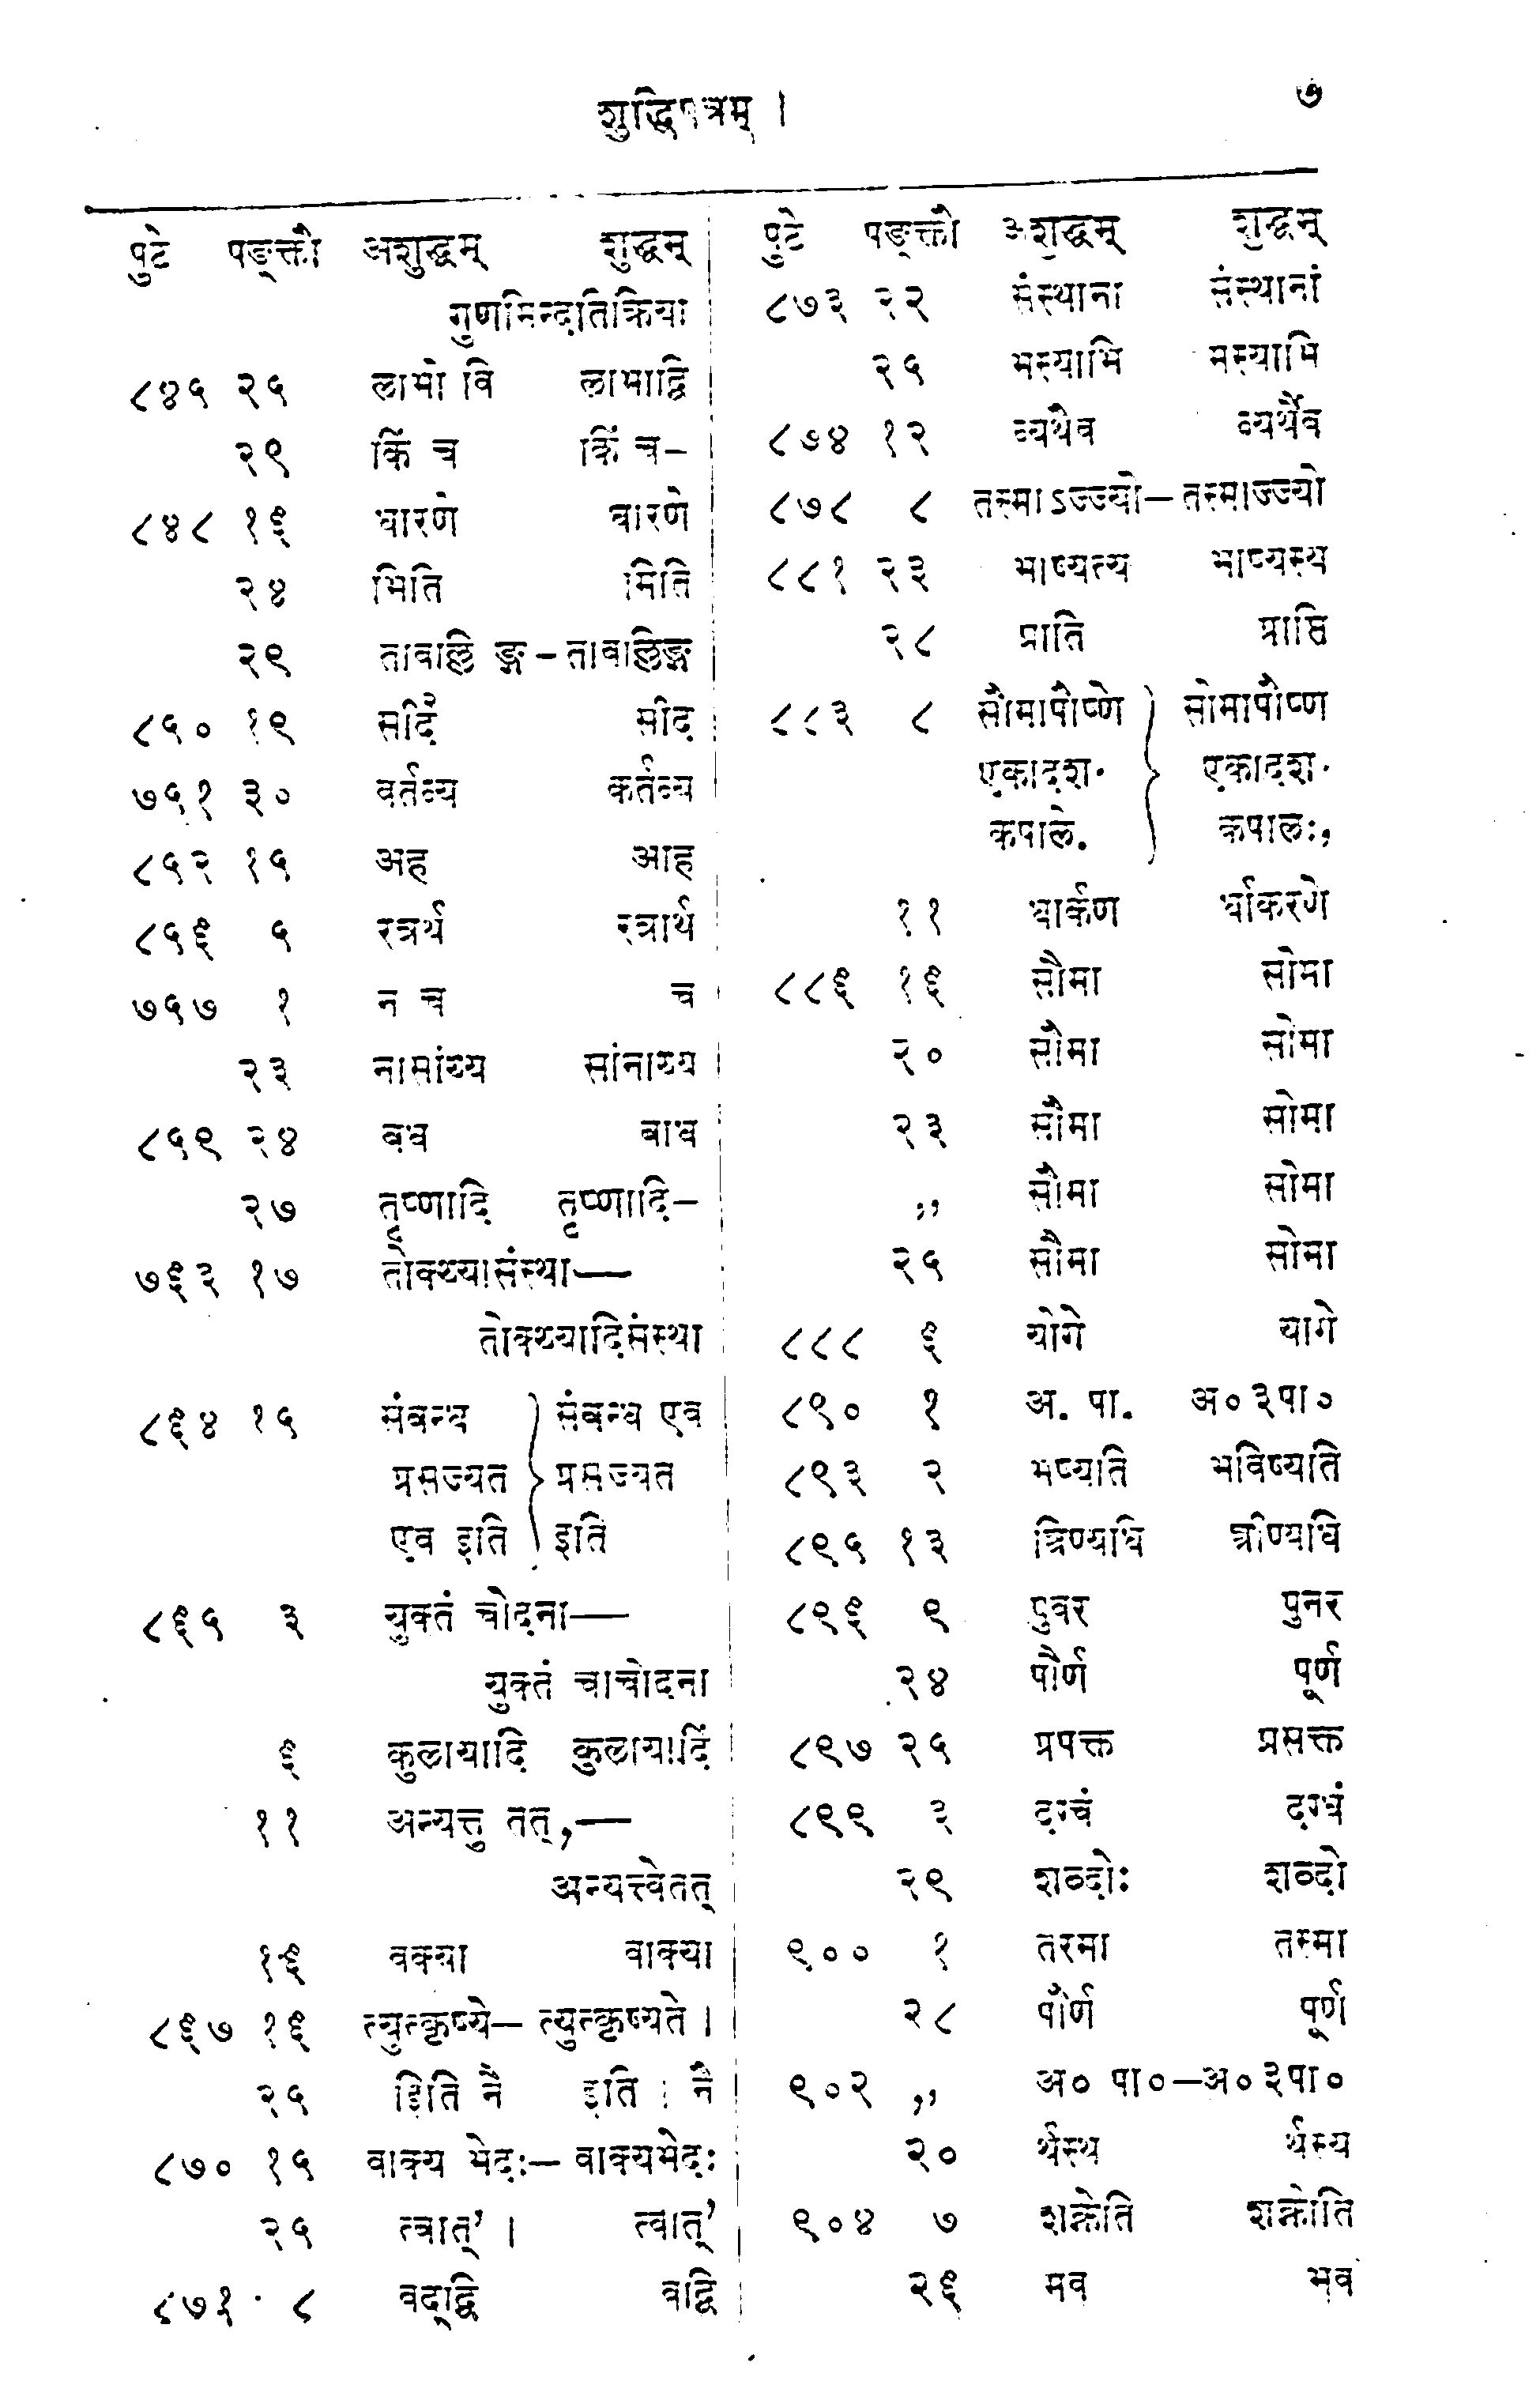 शुद्धिपत्रम् ।
७
पुटे पङ्क्तौ अशुद्धम् शुद्धम्
गुणमिन्दतिक्रिया
८४५ २५ लामो वि लाभाद्वि
२९ किं च किं च-
८४८ १६ धारणे वारणे
२४ भिति मिति
२९ तावाल्लि ङ्ग - तावाल्लिङ्ग
८५० १९ सदिं सीद
७५१ ३० वर्तव्य कर्तव्य
८५२ १५ अह आह
८५६ ५ रत्रर्थ रत्रार्थ
७५७ १ न च च
२३ नासांय्य सांनाय्य
८५९ २४ बध बाध
२७ तृष्णादि तृष्णादि-
७६३ १७ तोक्थ्यासंस्था—
तोक्थ्यादिसंस्था
८६४ १५ संबन्ध संबन्ध एव
प्रसज्यत प्रसज्यत
एव इति इति
८६५ ३ युक्तं चोदना—
युक्तं चाचोदना
६ कुलायादि कुलायादिं
११ अन्यत्तु तत्,—
अन्यत्त्वेतत्
१६ वक्या वाक्या
८६७ १६ त्युत्कृष्ये— त्युत्कृष्यते ।
२५ इिति नै इति । नै
८७० १५ वाक्य भेदः— वाक्यभेदः
२५ त्वात्' । त्वात्'
८७१ ८ वद्द्वि वद्वि
पुटे पङ्क्तौ अशुद्धम् शुद्धम्
८७३ २२ संस्थाना संस्थानां
२५ भस्याभि मस्याभि
८७४ १२ व्यथैव व्यर्थैव
८७८ ८ तस्माऽज्ज्यो— तस्माज्ज्यो
८८१ २३ भाष्यत्य भाष्यस्य
२८ प्राति प्राप्ति
८८३ ८ सौमापौष्णे सोमापौष्ण
एकादश· एकादश·
कपाले. कपालः,
११ धार्कण र्धाकरणे
८८६ १६ सौमा सोमा
२० सौमा सोमा
२३ सौमा सोमा
,, सौमा सोमा
२५ सौमा सोमा
८८८ ६ योगे यागे
८९० १ अ. पा. अ० ३पा०
८९३ २ भष्यति भविष्यति
८९५ १३ त्रिण्यधि त्रीण्यधि
८९६ ९ पुवर पुनर
२४ पौर्ण पूर्ण
८९७ २५ प्रपक्त प्रसक्त
८९९ ३ दग्चं दग्धं
२९ शब्दोः शब्दो
९०० १ तरमा तस्मा
२८ पौर्ण पूर्ण
९०२ ,, अ० पा०—अ० ३पा०
२० र्थस्थ र्थस्य
९०४ ७ शक्नेति शक्नोति
२६ मव भव